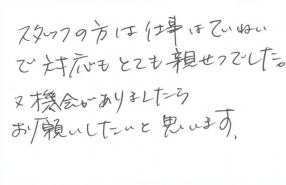 スタッフの方は仕事はていねい
で対応もとても親せつでした。
又機会がありましたら
お願いしたいと思います。